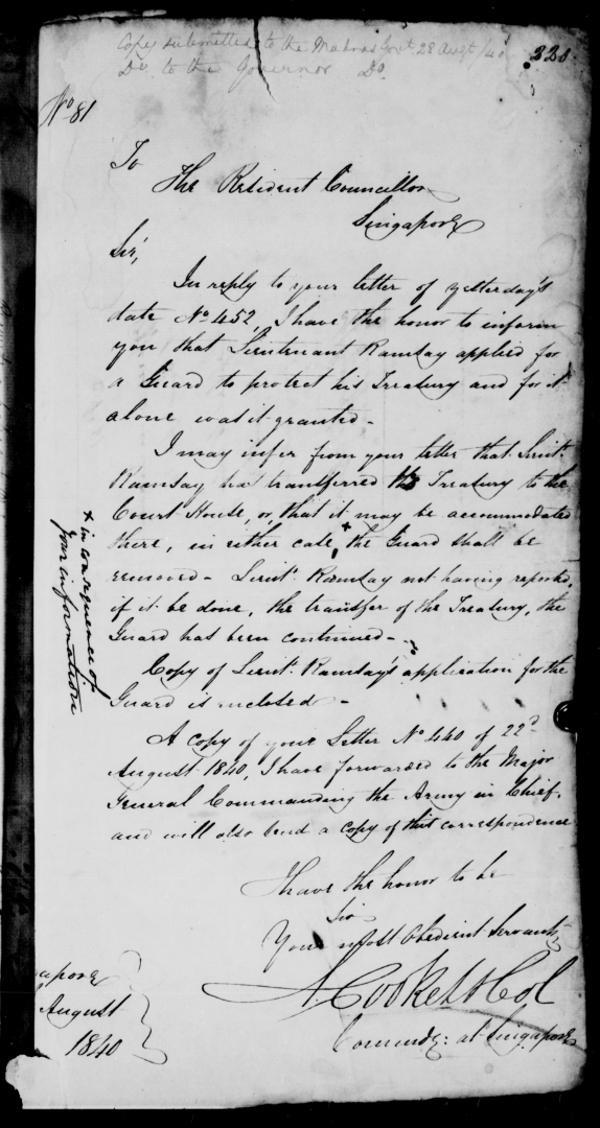 Copy submitted to the Madras Govt 28 Augt /40
Do. to the Governor Do.
No 81
To
The Resident Councillor
Singapore
Sir,
In reply to your letter of yesterday's
date No 452, I have the honor to inform
you that Lieutenant Ramsay applied for
a Guard to protect his Treasury and for it
alone was it granted.
I may infer from your letter that Lieut.
Ramsay has transferred the Treasury to the
Court House, or, that it may be accommodated
there, in either case, x the Guard shall be
removed - Lieut. Ramsay not having reported,
if it be done, the transfer of the Treasury, the
Guard has been continued -
x in consequence of
your information
Copy of Lieut. Ramsay's application for the
Guard is enclosed -
A copy of your Letter No 440 of 22d
August 1840, I have forwarded to the Major
General Commanding the Army in Chief,
and will also send a copy of this correspondence
I have the honor to be
Sir
Your most Obedient Servant
A Cooke Lt Col
Commdg: at Singapore
apore
August
1840